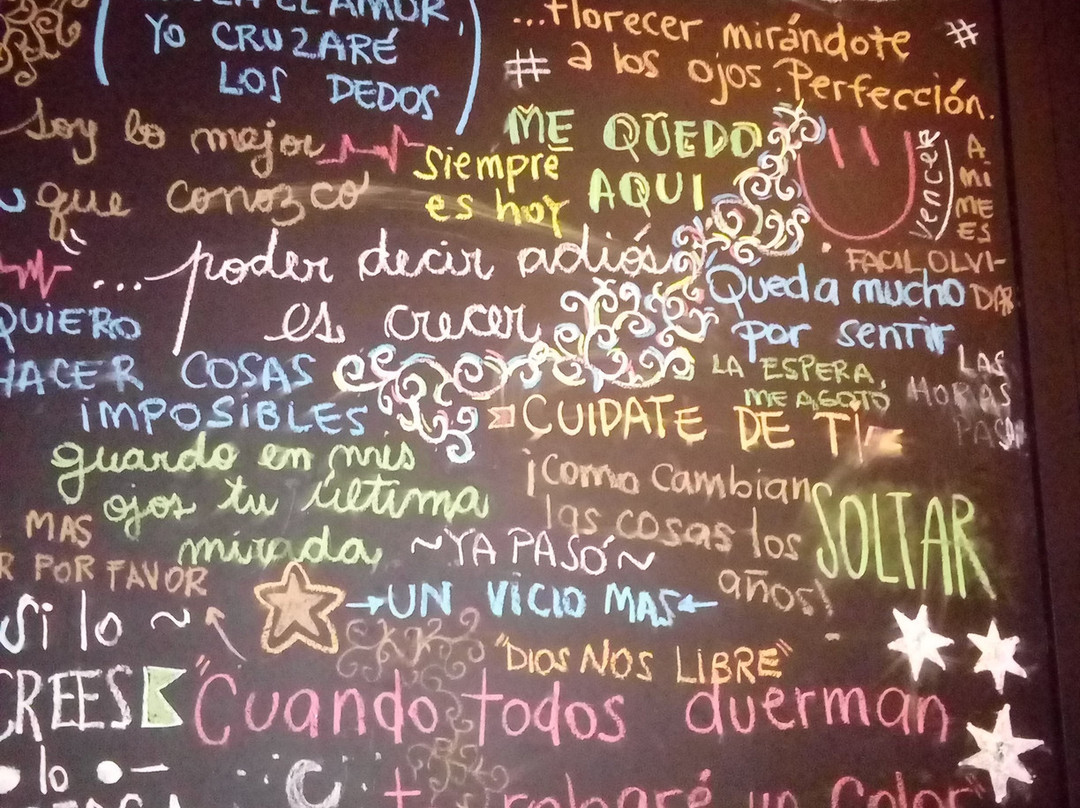 EL AMOR,
YO CRUZARÉ
LOS DEDOS
...florecer mirándote
a los ojos. Perfección.
#
#
Soy lo mejor
que conozco
Siempre
es hoy
ME QUEDO
AQUI
Vencer
A
Mi
ME
ES
FACIL OLVI-
DAR
...poder decir adiós
es crecer
Queda mucho
por sentir
QUIERO
HACER COSAS
iMPOSiBLES
LA ESPERA,
ME AGOTÓ
LAS
HORAS
PASA
CUIDATE DE Ti
guardo en mis
ojos tu última
mirada
¡Como Cambian
las cosas los
años!
SOLTAR
MAS
POR FAVOR
~YA PASÓ~
UN VICIO MAS
Si lo ~
CREES
lo
"DIOS NOS LiBRE"
"Cuando todos duerman
te robaré un color"